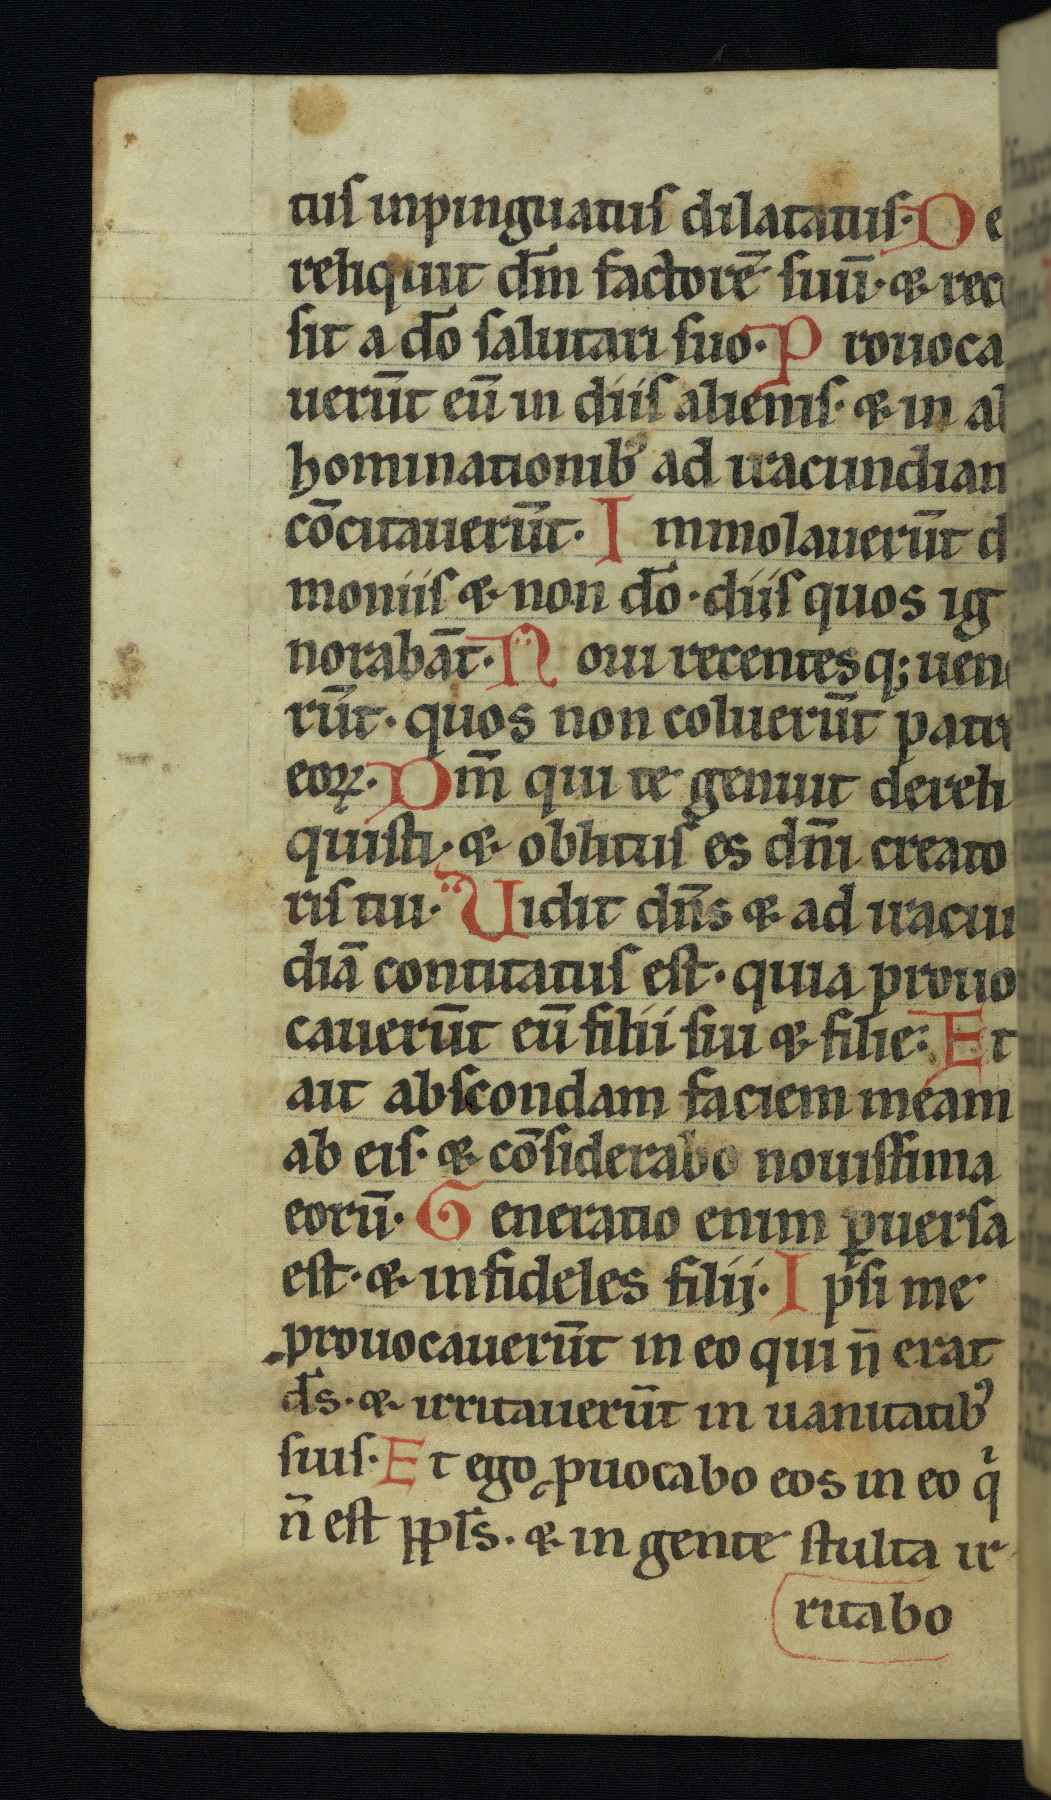 tus inpinguatus dilatatus· De
reliquit dm̄ factorē suū· & rec
sit a dō salutari suo· Prouoca
uerūt eū in diis alienis· & in ab
hominationib' ad iracundiam
cōcitauerūt· Immolauerūt d
moniis & non dō· diis quos ig
norabāt· Noui recentesq; uene
rūt· quos non coluerūt patr
eoꝝ· Dm̄ qui te genuit dereli
quisti· & oblitus es dn̄i creato
ris tui· Uidit dn̄s & ad iracun
diā contitatus est· quia prouo
cauerūt eū filii sui & filie: Et
ait abscondam faciem meam
ab eis· & cōsiderabo nouissima
eorū· Generatio enim ꝑuersa
est· & infideles filij· Ipsi me
prouocauerūt in eo qui n̄ erat
ds̄· & irritauerūt in uanitatibꝰ
suis· Et ego ꝓuocabo eos in eo qͥ
n̄ est ppl̄s· & in gente stulta ir
ritabo